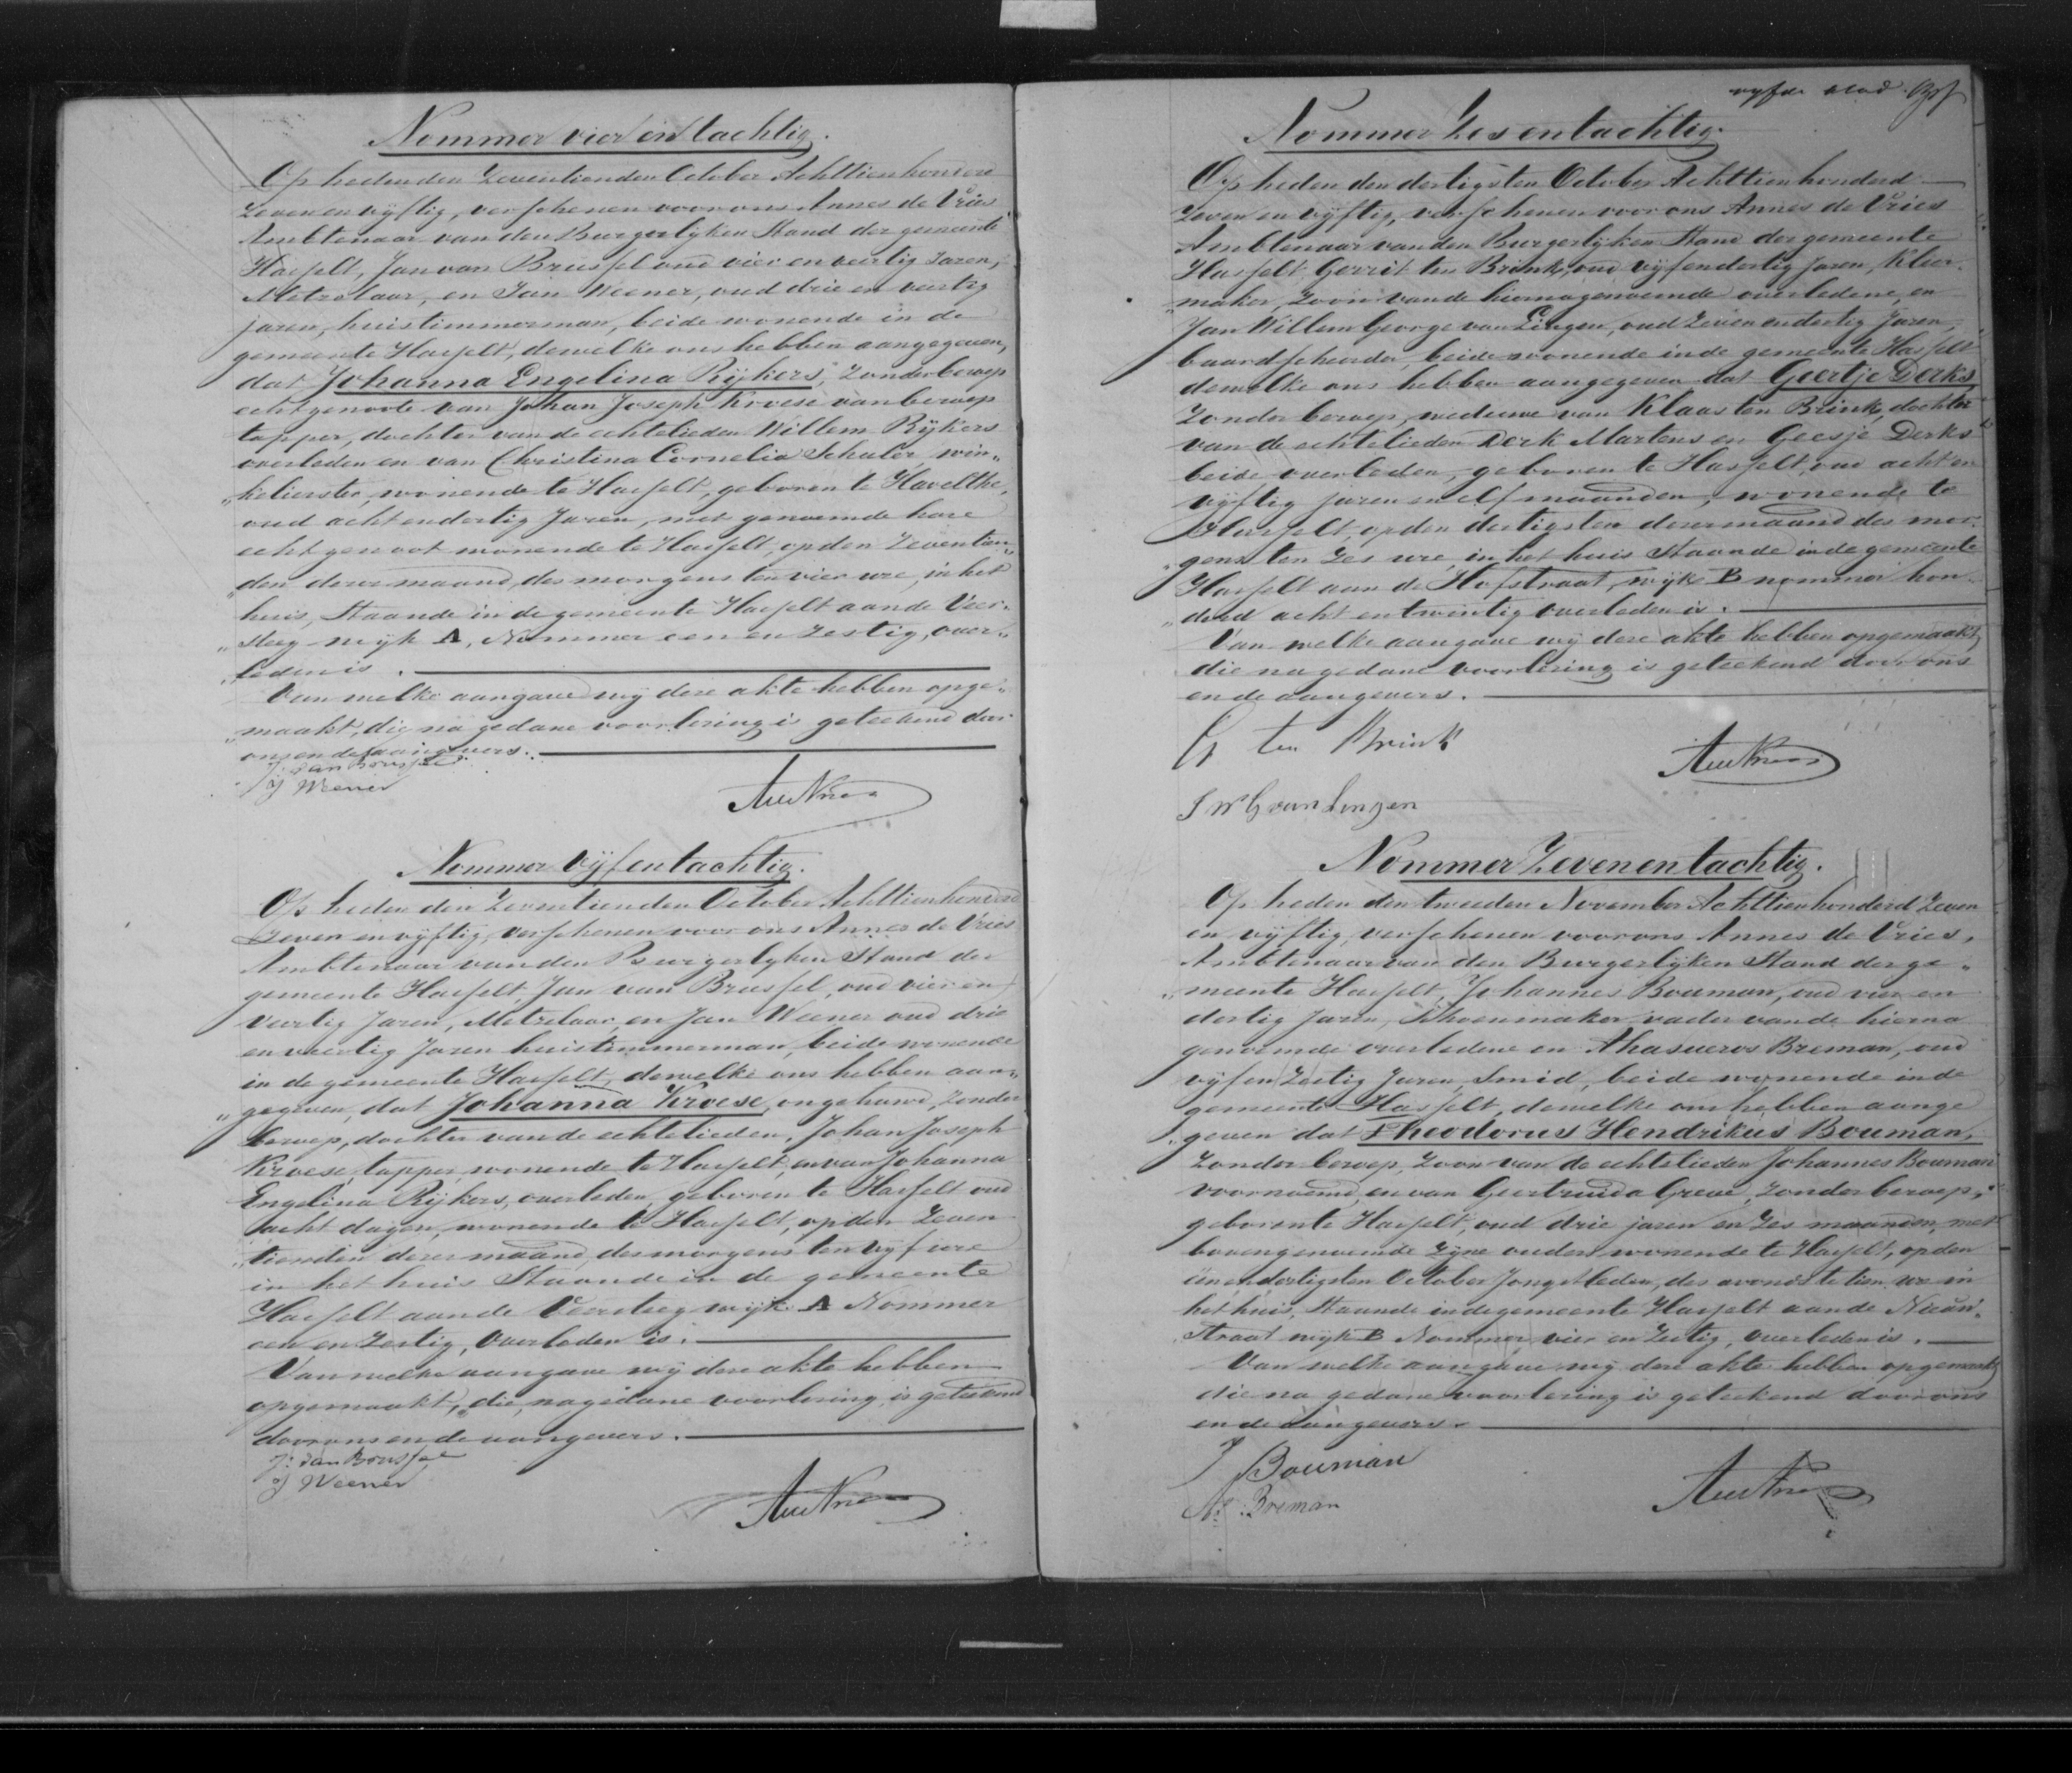 Nommer vier en tachtig.
Op heden den Zeventienden October Achttienhonderd
Zeven en vyftig, verschenen voor ons Annes de Vries
Ambtenaar van den Burgerlyken Stand der gemeente
Hasselt, Jan van Brussel oud vier en veertig Jaren,
Metzelaar, en Jan Weener, oud drie en veertig
jaren, huistimmerman, beide wonende in de
gemeente Hasselt, dewelke ons hebben aangegeven,
dat Johanna Engelina Rijkers, Zonder beroep
echtgenoote van Johan Joseph Kroese van beroep
tapper, dochter van de echtelieden Willem Rijkers
overleden en van Christina Cornelia Schuler, win„
„kelierster, wonende te Hasselt, geboren te Havelthe,
oud acht en dertig Jaren, met genoemde hare
echtgenoot wonende te Hasselt, op den Zeventien„
„den dezer maand, des morgens ten vier ure, in het
huis, Staande in de gemeente Hasselt aan de Veer„
„steeg wijk A, Nommer een en Zestig, over„
„leden is.
Van welke aangave wij deze akte hebben opge„
„maakt, die na gedane voorlezing is geteekend door
ons en de aangevers.
J: van Brussel
J Weener
Nommer Vijf en tachtig.
Op heden den Zeventienden October Achttienhonderd
Zeven en vyftig, verschenen voor ons Annes de Vries
Ambtenaar van den Burgerlyken Stand der
gemeente Hasselt, Jan van Brussel, oud vier en
Veertig Jaren, Metzelaar, en Jan Weener oud drie
en veertig Jaren huistimmerman, beide wonende
in de gemeente Hasselt, dewelke ons hebben aan„
„gegeven, dat Johanna Kroese, ongehuwd, Zonder
beroep, dochter van de echtelieden, Johan Joseph
Kroese, tapper, wonende te Hasselt, en van Johanna
Engelina Rijkers, overleden, geboren te Hasselt oud
acht dagen, wonende te Hasselt, op den Zeven
„tienden dezer maand, des morgens ten vijf ure
in het huis Staande in de gemeente
Hasselt aan de Veersteeg wijk A Nommer
een en Zestig, Overleden is.
Van welke aangave wij deze akte hebben
opgemaakt, die, na gedane voorlezing is geteekend
door ons en de aangevers.
J: van Brussel
J Weener
vyfde blad
Nommer Zes en tachtig.
Op heden den dertigsten October Achttienhonderd
Zeven en vyftig, verschenen voor ons Annes de Vries
Ambtenaar van den Burgerlyken Stand der gemeente
Hasselt, Gerrit ten Brink, oud vijf en dertig Jaren, kleer„
„maker, Zoon van de hierna genoemde overledene, en
Jan Willem George van Lingen, oud Zeven en dertig Jaren,
baardscheerder, beide wonende in de gemeente Hasselt
dewelke ons hebben aangegeven dat Geertje Derks
Zonder beroep, weduwe van Klaas ten Brink, dochter
van de echtelieden Derk Martens en Geesje Derks
beide overleden, geboren te Hasselt, oud acht en
vijftig jaren en elf maanden, wonende te
Hasselt, op den dertigsten dezer maand des mor„
„gens ten Zes ure, in het huis Staande in de gemeente
Hasselt aan de Hofstraat, wijk B nommer hon„
„derd acht en twintig overleden is.
Van welke aangave wij deze akte hebben opgemaakt,
die na gedane voorlezing is geteekend door ons
en de aangevers.
G ten Brink
J W G van Lingen
Nommer Zeven en tachtig.
Op heden den tweeden November Achttienhonderd Zeven
en vijftig, verschenen voor ons Annes de Vries,
Ambtenaar van den Burgerlijken Stand der ge„
„meente Hasselt, Johannes Bouman, oud vier en
dertig Jaren, Schoenmaker, vader van de hierna
genoemde overledene en Ahasueros Breman, oud
vijf en Zestig Jaren, Smid, beide wonende in de
gemeente Hasselt, dewelke ons hebben aange
„geven dat Theodorus Hendrikus Bouman,
Zonder beroep, Zoon van de echtelieden Johannes Bouman
voornoemd, en van Geertruida Greve, Zonder beroep,
geboren te Hasselt, oud drie jaren en Zes maanden, met
bovengenoemde Zijne ouders wonende te Hasselt, op den
een en dertigsten October Jongstleden, des avonds te tien ure in
het huis, Staande in de gemeente Hasselt aan de Nieuw„
„straat wijk B Nommer vier en Zestig, overleden is.
Van welke aangave wij deze akte hebben opgemaakt,
die na gedane voorlezing is geteekend door ons
en de aangevers.
J Bouman
As. Breman